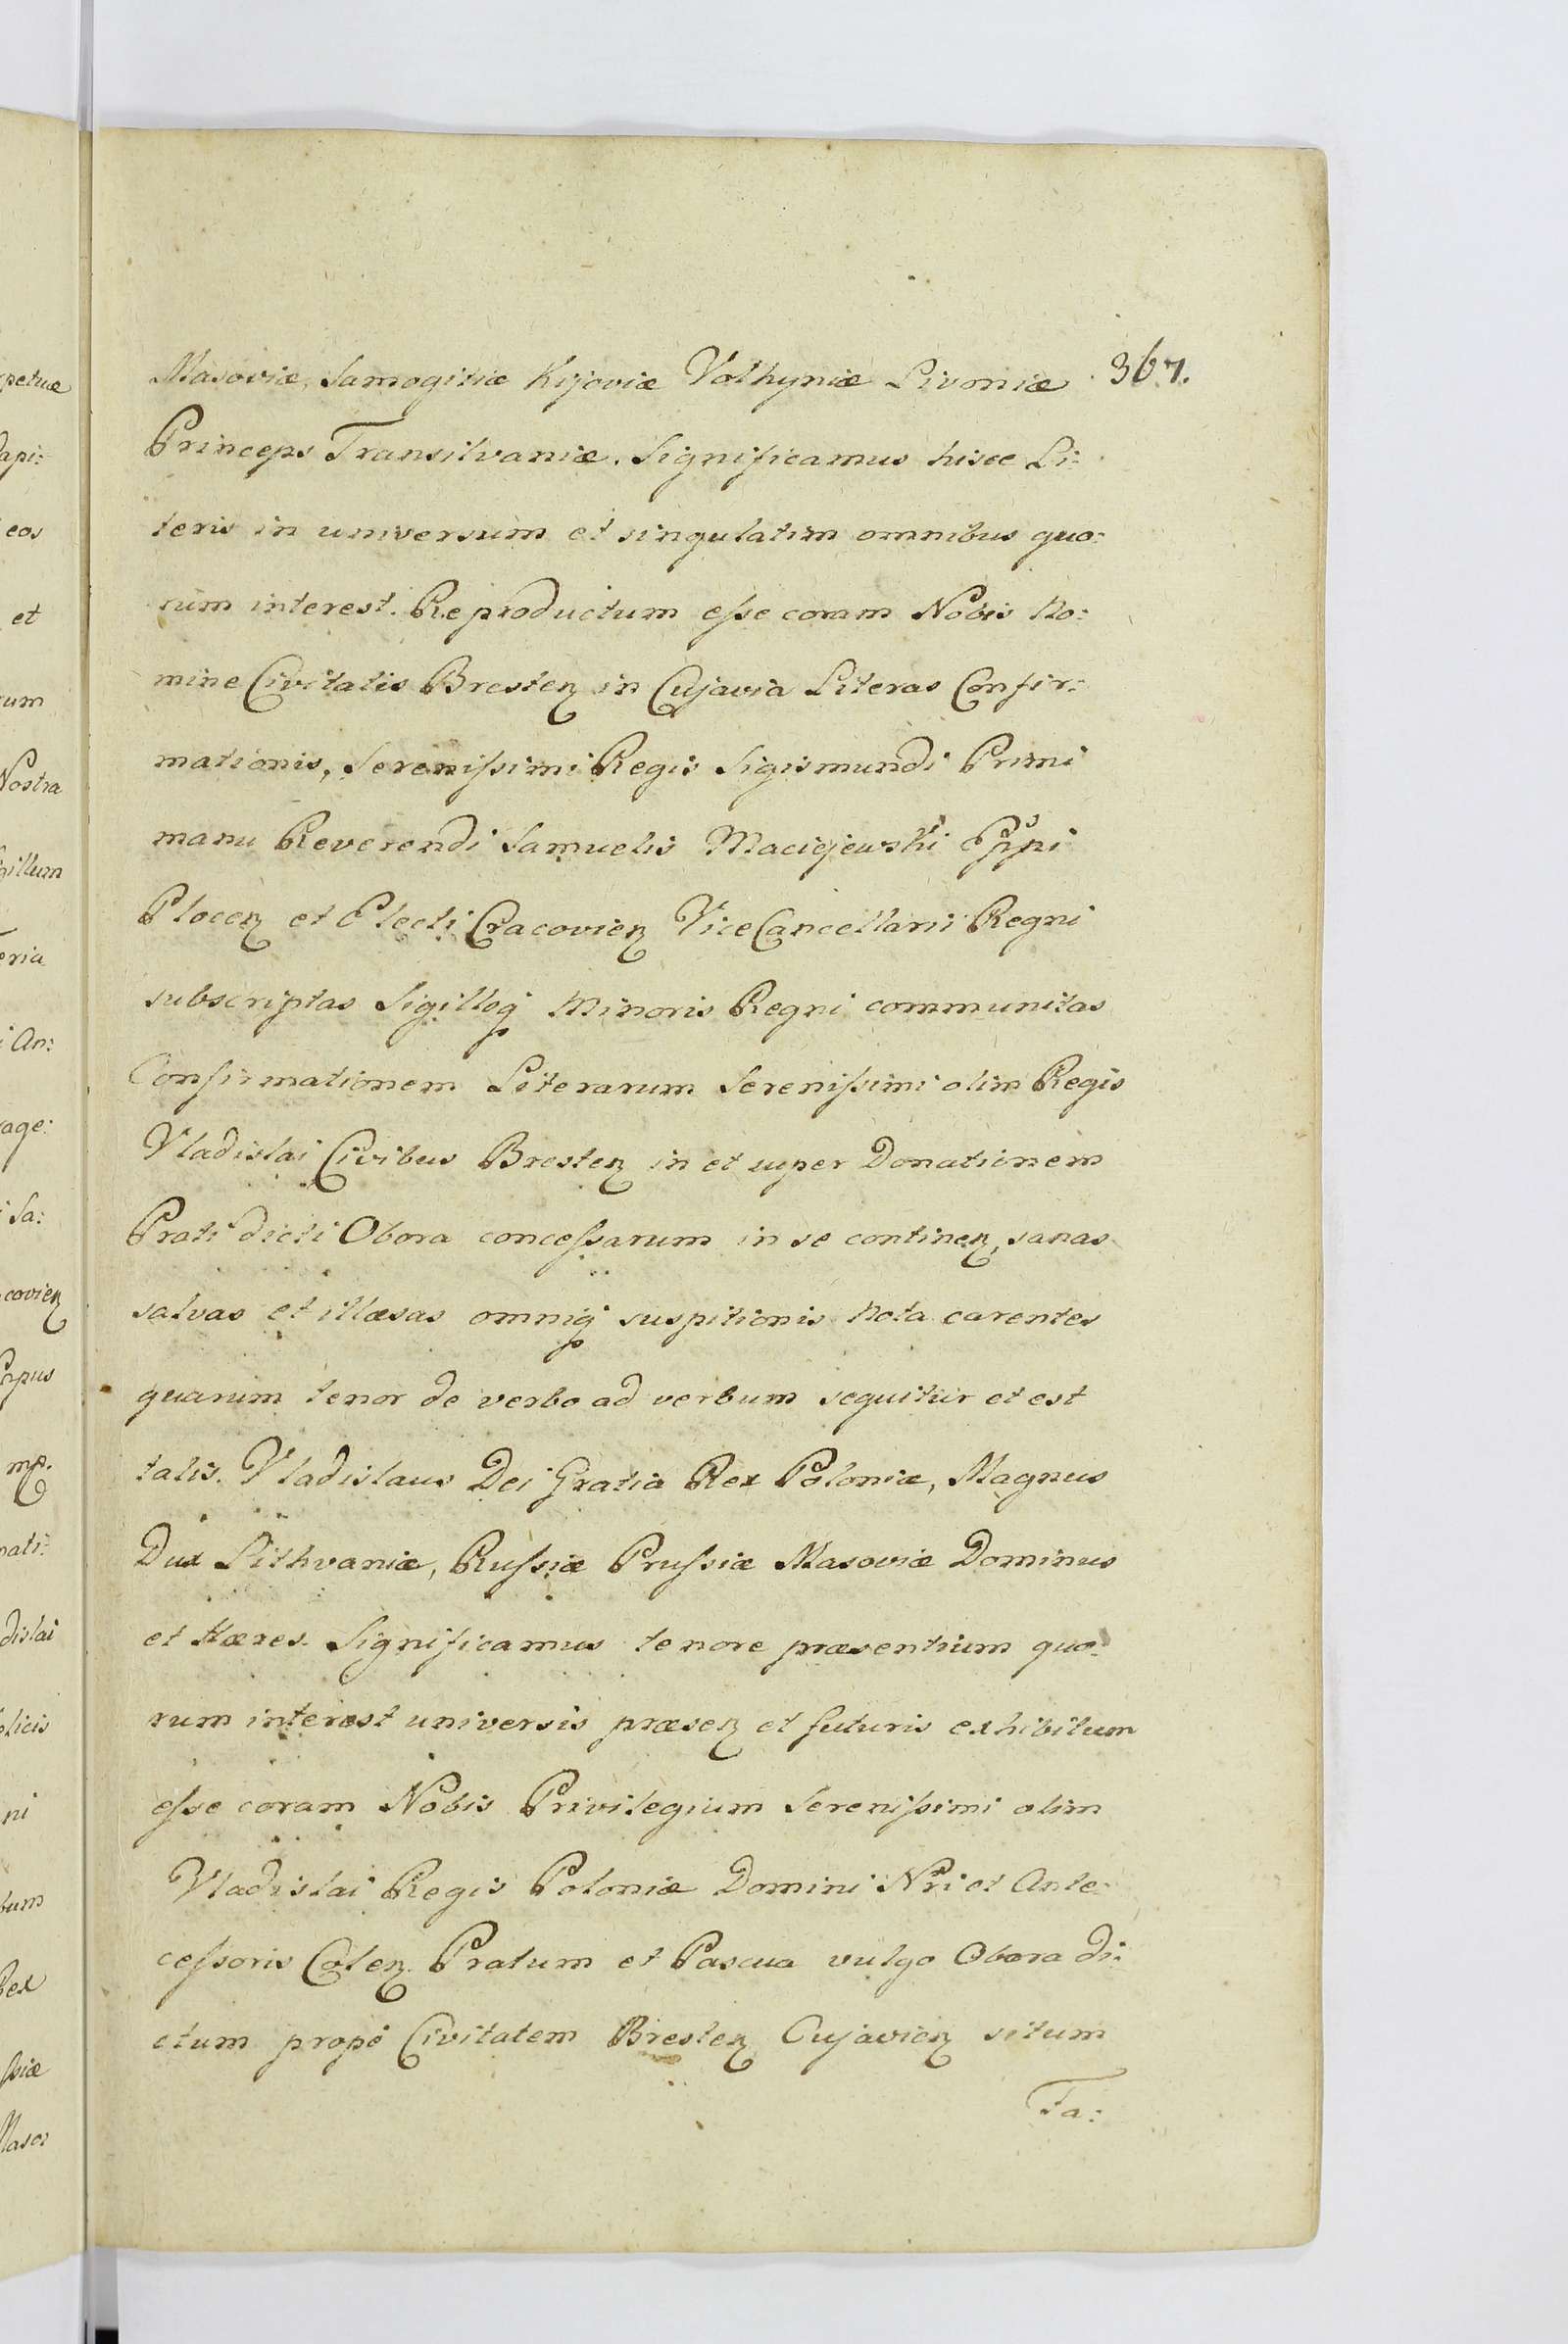 Masoviæ, Samogitiæ Kijoviæ Volhyniæ Livoniæ 367.
Princeps Transilvaniæ. Significamus hisce Li:
teris in universum et singulatim omnibus quo:
rum interest. Reproductum eſse coram Nobis No:
mine Civitatis Bresteɳ in Cujavia Literas Confir:
mationis, Sereniſsimi Regis Sigismundi Primi
manu Reverendi Samuelis Maciejewski Eppi
Ploceɳ et Electi Cracovieɳ ViceCancellarii Regni
subscriptas Sigilloq Minoris Regni communitas
Confirmationem Literarum Sereniſsimi olim Regis
Vladislai Civibus Bresteɳ in et super Donationem
Prati dicti Obora conceſsarum in se contineɳ, sanas
salvas et illæsas omniq suspitionis Nota carentes
quarum tenor de verbo ad verbum sequitur et est
talis. Vladislaus Dei Gratia Rex Poloniæ, Magnus
Dux Lithvaniæ, Ruſsiæ Pruſsiæ Masoviæ Dominus
et Hæres. Significamus tenore præsentium quo:
rum interest universis præseɳ et futuris exhibitum
eſse coram Nobis Privilegium Sereniſsimi olim
Vladislai Regis Poloniæ Domini Nri et Ante:
ceſsoris Coleɳ. Pratum et Pascua vulgo Obora di:
ctum propè Civitatem Bresteɳ Cujavieɳ situm
Ta: